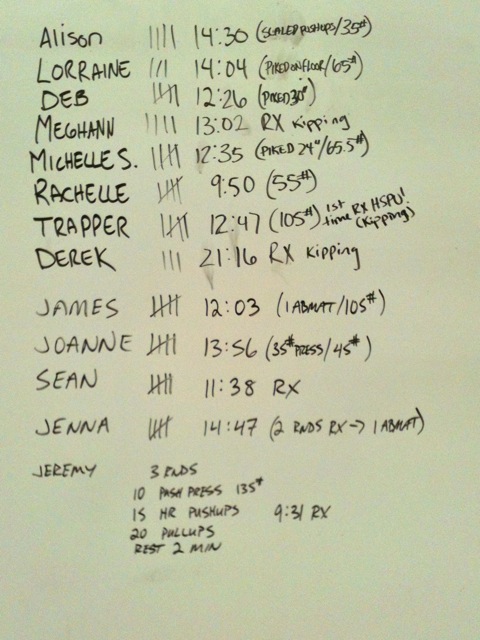 Alison |||| 14:30 (SCALED PUSHUPS/35#)
LORRAINE ||| 14:04 (PIKED ON FLOOR/65#)
DEB 12:26 (PIKED 30")
MEGHANN |||| 13:02 RX Kipping
MICHELLE S. 12:35 (PIKED 24"/65.5#)
RACHELLE 9:50 (55#)
TRAPPER 12:47 (105#) 1st time RX HSPU! (Kipping)
DEREK ||| 21:16 RX Kipping
JAMES 12:03 (1 ABMAT/105#)
JOANNE 13:56 (35# PRESS/45#)
SEAN 11:38 RX
JENNA 14:47 (2 RNDS RX -> 1 ABMAT)
JEREMY 3 RNDS
10 PUSH PRESS 135#
15 HR PUSHUPS 9:31 RX
20 PULLUPS
REST 2 MIN